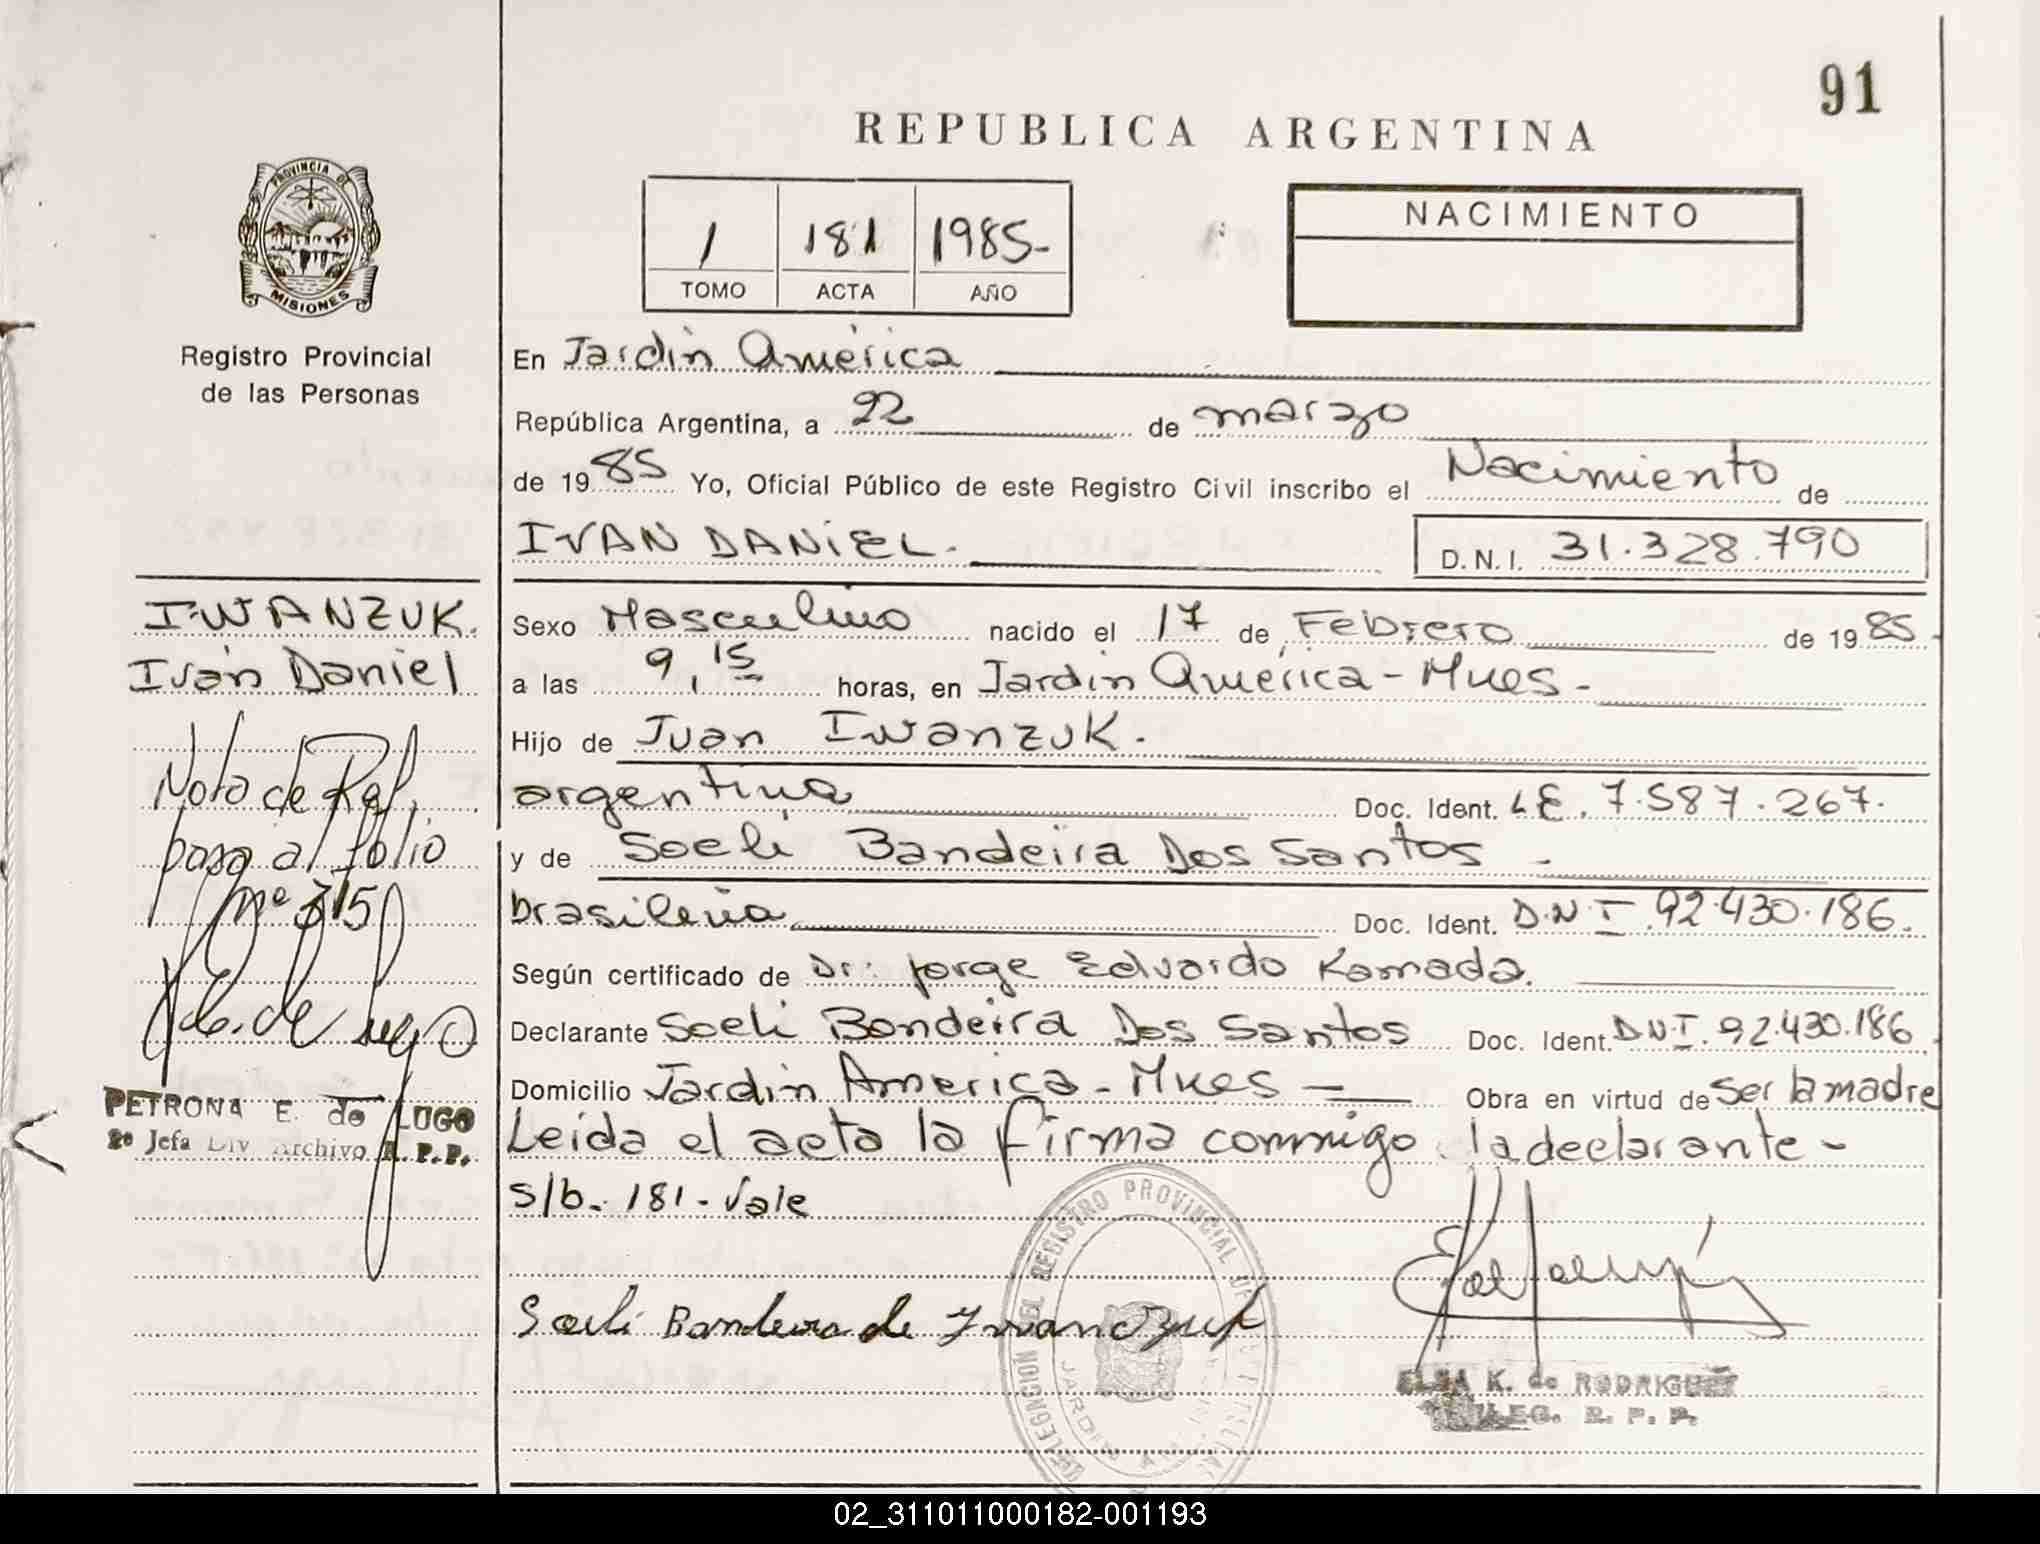 91
REPUBLICA ARGENTINA
PROVINCIA DE
MISIONES
Registro Provincial
de las Personas
1 181 1985-
TOMO ACTA AÑO
NACIMIENTO
En Jardín América
República Argentina, a 22 de marzo
de 1985 Yo, Oficial Público de este Registro Civil inscribo el Nacimiento de
IVAN DANIEL. D.N.I. 31.328.790
IWANZUK.
Iván Daniel
Nota de Ref.
pasa al folio
nº 315
PETRONA E. de LUGO
2º Jefa Div Archivo R.P.P.
Sexo Masculino nacido el 17 de Febrero de 1985.
a las 9,15 horas, en Jardín América - Mnes -
Hijo de Juan Iwanzuk.
argentina Doc. Ident. LE. 7.587.267.
y de Soeli Bandeira Dos Santos -
brasileña Doc. Ident. D.N.I. 92.430.186.
Según certificado de Dr: Jorge Eduardo Kamada.
Declarante Soeli Bandeira Dos Santos Doc. Ident. DNI. 92.430.186.
Domicilio Jardín America - Mnes — Obra en virtud de Ser la madre
Leída el acta la firma conmigo la declarante -
s/b. 181 - Vale
Soeli Bandeira de Iwanczuk
DELEGACION DEL REGISTRO PROVINCIAL DE
JARDIN AM
ELSA K. de RODRIGUEZ
DELEG. R. P. P.
02_311011000182-001193